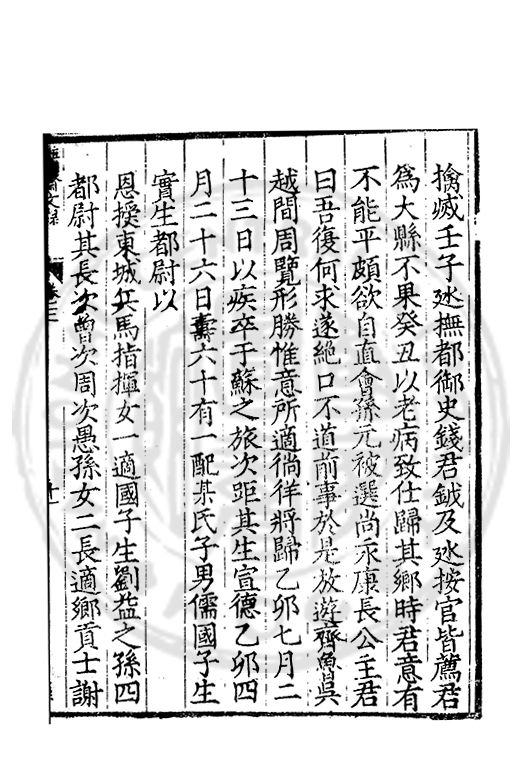 擒滅壬子廵撫都御史錢君鉞及廵按官皆薦君
爲大縣不果癸丑以老病致仕歸其鄉時君意有
不能平頗欲自直會孫元被選尚永康長公主君
曰吾復何求遂絕口不道前事於是放遊齊魯吳
越間周覽形勝惟意所適徜徉將歸乙卯七月二
十三日以疾卒于蘇之旅次距其生宣德乙卯四
月二十六日壽六十有一配某氏子男儒國子生
實生都尉以
恩授東城兵馬指揮女一適國子生劉益之孫四
都尉其長次曾次周次愚孫女二長適鄉貢士謝